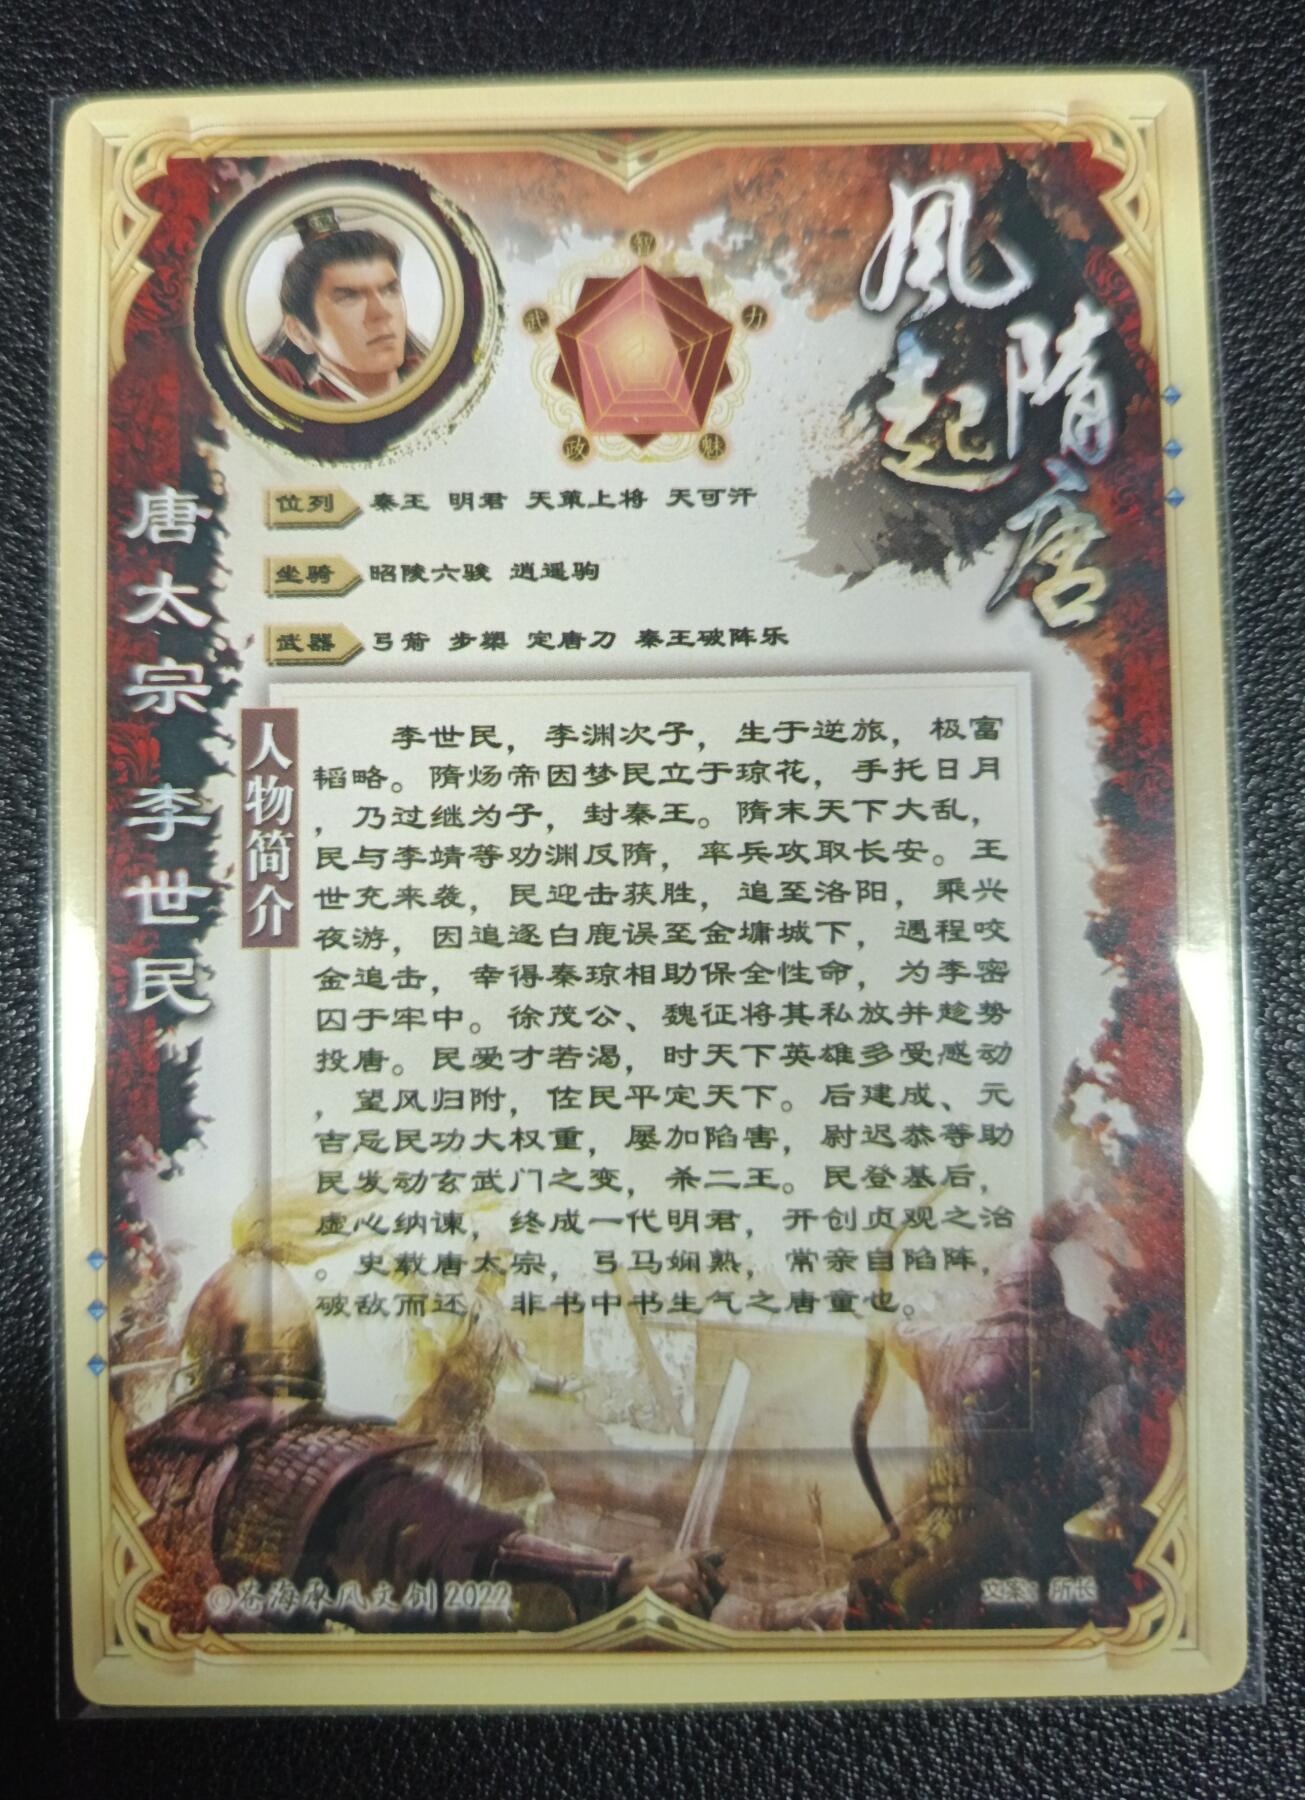 風起隋唐
智
武
力
政
魅
唐太宗 李世民
位列 秦王 明君 天策上将 天可汗
坐骑 昭陵六骏 逍遥驹
武器 弓箭 步槊 定唐刀 秦王破阵乐
人物简介
李世民，李渊次子，生于逆旅，极富
韬略。隋炀帝因梦民立于琼花，手托日月
，乃过继为子，封秦王。隋末天下大乱，
民与李靖等劝渊反隋，率兵攻取长安。王
世充来袭，民迎击获胜，追至洛阳，乘兴
夜游，因追逐白鹿误至金墉城下，遇程咬
金追击，幸得秦琼相助保全性命，为李密
囚于牢中。徐茂公、魏征将其私放并趁势
投唐。民爱才若渴，时天下英雄多受感动
，望风归附，佐民平定天下。后建成、元
吉忌民功大权重，屡加陷害，尉迟恭等助
民发动玄武门之变，杀二王。民登基后，
虚心纳谏，终成一代明君，开创贞观之治
。史载唐太宗，弓马娴熟，常亲自陷阵，
破敌而还，非书中书生气之唐童也。
©苍海承风文创 2022
文案：所长